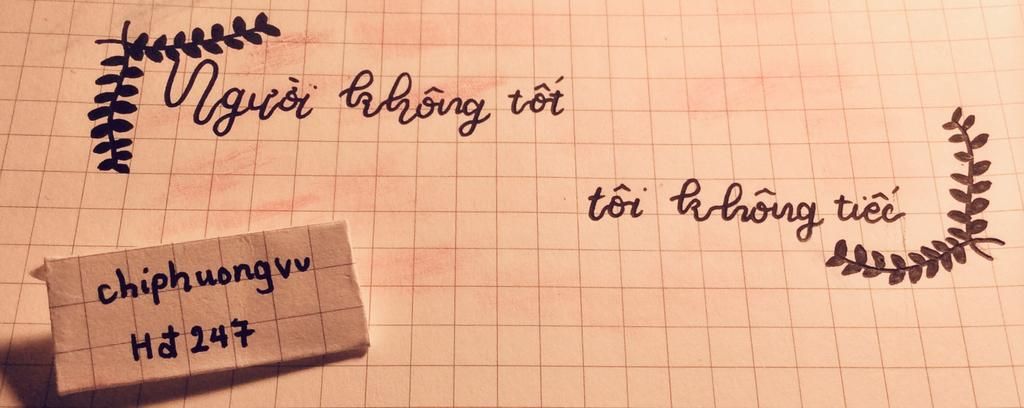 Người không tốt
tôi không tiếc
chiphuongvu
Hđ 247